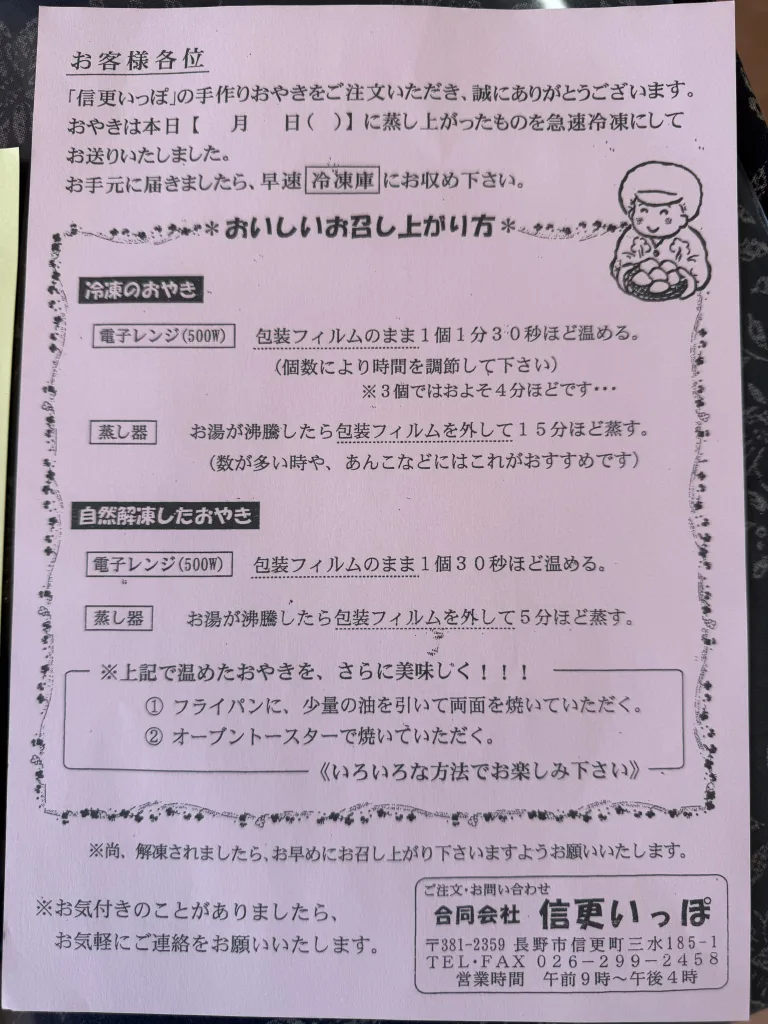 お客様各位
「信更いっぽ」の手作りおやきをご注文いただき、誠にありがとうございます。
おやきは本日【　月　日(　)】に蒸し上がったものを急速冷凍にして
お送りいたしました。
お手元に届きましたら、早速 冷凍庫 にお収め下さい。
＊おいしいお召し上がり方＊
冷凍のおやき
電子レンジ(500W)　包装フィルムのまま１個１分３０秒ほど温める。
（個数により時間を調節して下さい）
※３個ではおよそ４分ほどです･･･
蒸し器　お湯が沸騰したら包装フィルムを外して１５分ほど蒸す。
（数が多い時や、あんこなどにはこれがおすすめです）
自然解凍したおやき
電子レンジ(500W)　包装フィルムのまま１個３０秒ほど温める。
蒸し器　お湯が沸騰したら包装フィルムを外して５分ほど蒸す。
※上記で温めたおやきを、さらに美味しく！！！
① フライパンに、少量の油を引いて両面を焼いていただく。
② オーブントースターで焼いていただく。
《いろいろな方法でお楽しみ下さい》
※尚、解凍されましたら、お早めにお召し上がり下さいますようお願いいたします。
※お気付きのことがありましたら、
お気軽にご連絡をお願いいたします。
ご注文･お問い合わせ
合同会社　信更いっぽ
〒381-2359 長野市信更町三水185-1
TEL･FAX 026-299-2458
営業時間　午前９時～午後４時